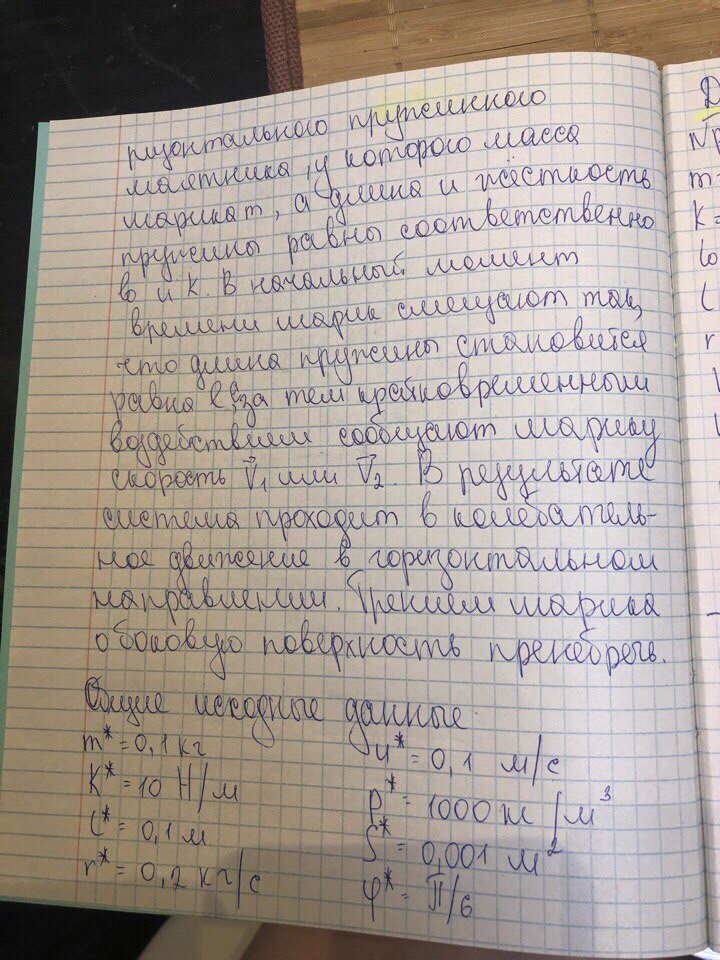 ризонтального пружинного
маятника, у которого масса
шарика m, а длина и жёсткость
пружины равны соответственно
l₀ и K. В начальный момент
времени шарик смещают так,
что длина пружины становится
равна l, а за тем кратковременным
воздействием сообщают шарику
скорость V⃗₁ или V⃗₂. В результате
система проходит в колебатель-
ное движение в горизонтальном
направлении. Трением шарика
о боковую поверхность пренебречь.
Общие исходные данные.
m* = 0,1 кг
K* = 10 Н/м
l* = 0,1 м
r* = 0,2 кг/с
u* = 0,1 м/с
ρ* = 1000 кг/м³
S* = 0,001 м²
φ* = π/6
Д
m
K =
l₀
l
r